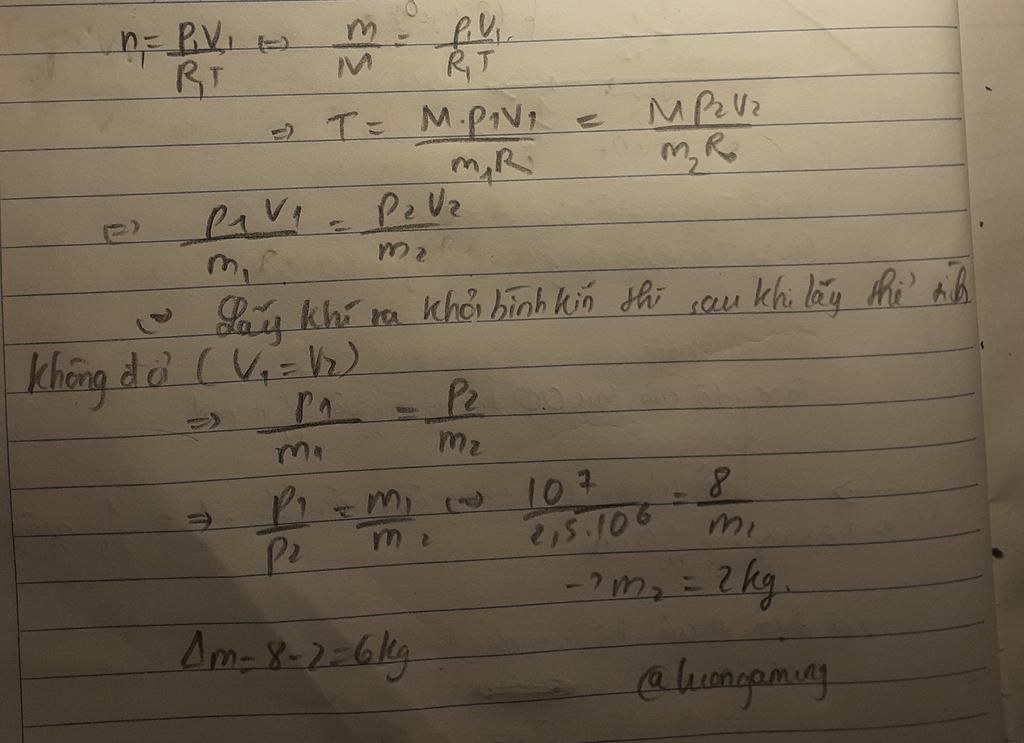 n₁ = P₁V₁/R₁T ⇔ m/M = P₁V₁/R₁T
⇒ T = M.P₁V₁/m₁R = MP₂V₂/m₂R
⇔ P₁V₁/m₁ = P₂V₂/m₂
⇔ Lấy khí ra khỏi bình kín thì sau khi lấy thể tích
không đổi (V₁ = V₂)
⇒ P₁/m₁ = P₂/m₂
⇒ P₁/P₂ = m₁/m₂ ⇔ 10⁷/2,5.10⁶ = 8/m₂
→ m₂ = 2kg.
Δm = 8 - 2 = 6kg
@luongaming